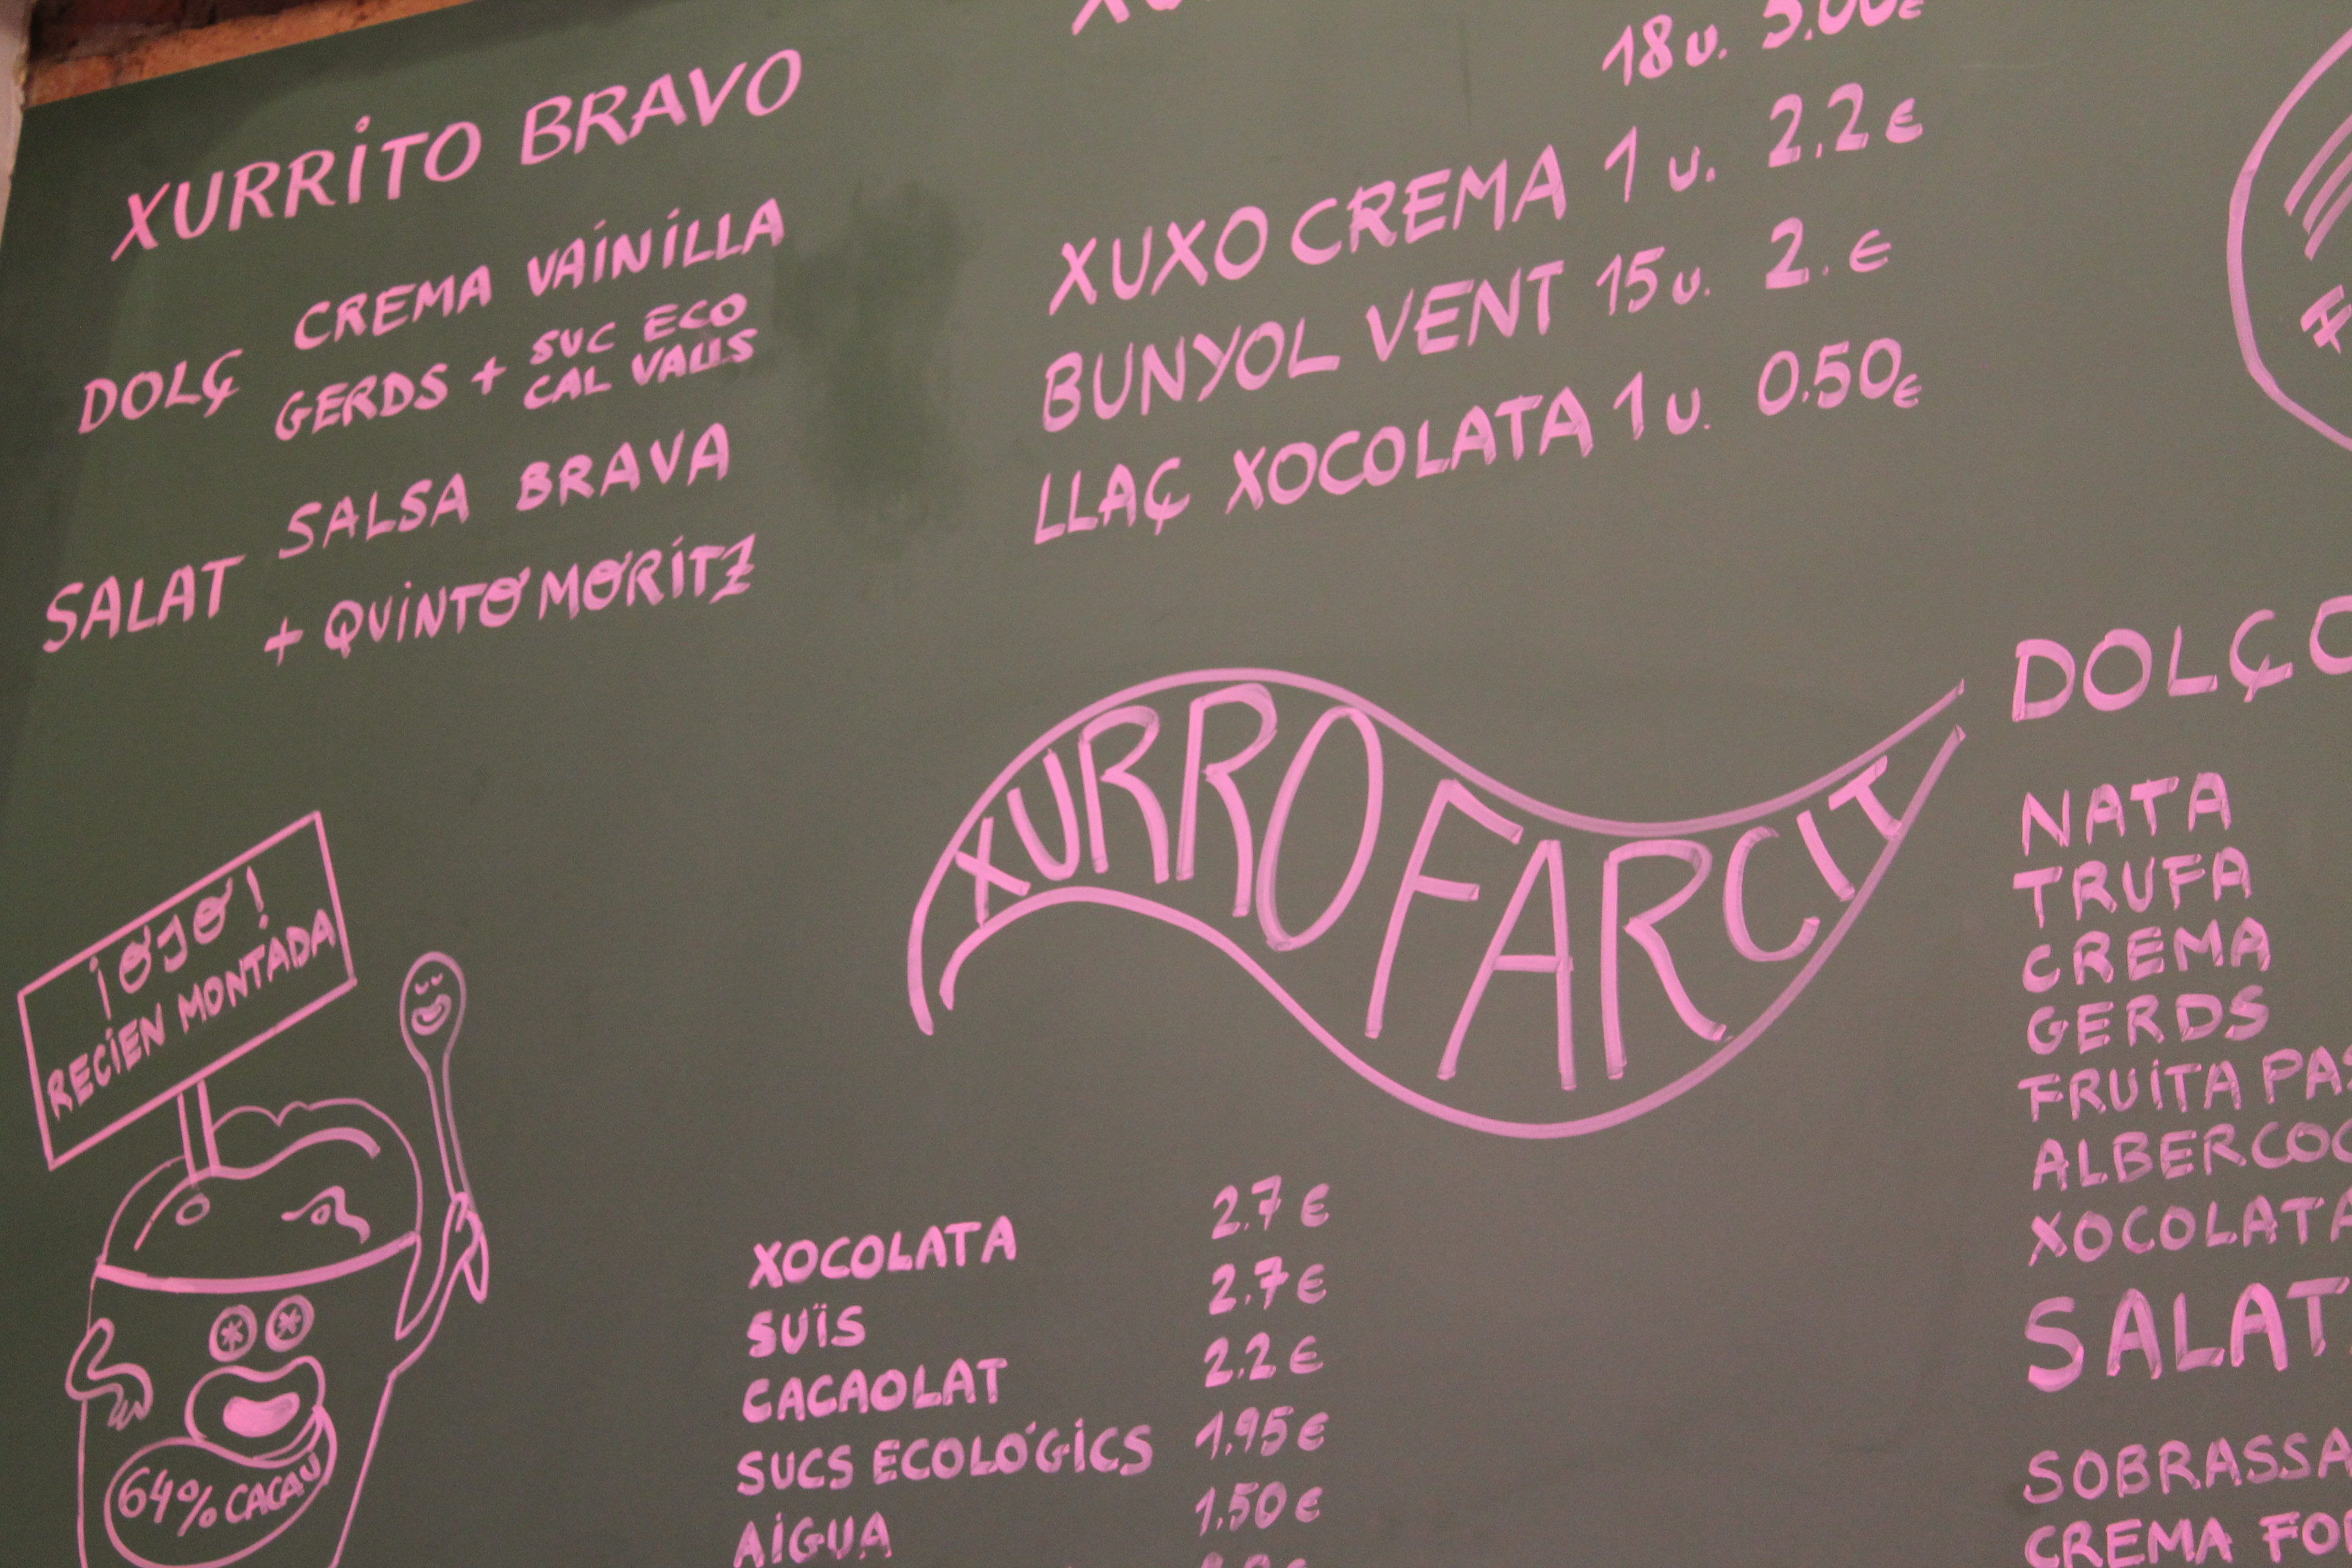 XURRITO BRAVO
DOLÇ
CREMA VAINILLA
GERDS + SUC ECO
CAL VALLS
SALAT
SALSA BRAVA
+ QUINTO MORITZ
18 u. 5.00€
XUXO CREMA 1 u. 2.2€
BUNYOL VENT 15 u. 2.€
LLAÇ XOCOLATA 1 u. 0.50€
XURRO FARCIT
¡OJO!
RECIEN MONTADA
64% CACAU
XOCOLATA 2.7€
SUÏS 2.7€
CACAOLAT 2.2€
SUCS ECOLÓGICS 1,95€
AIGUA 1,50€
DOLÇ
NATA
TRUFA
CREMA
GERDS
FRUITA PAS
ALBERCOC
XOCOLATA
SALAT
SOBRASSA
CREMA FO